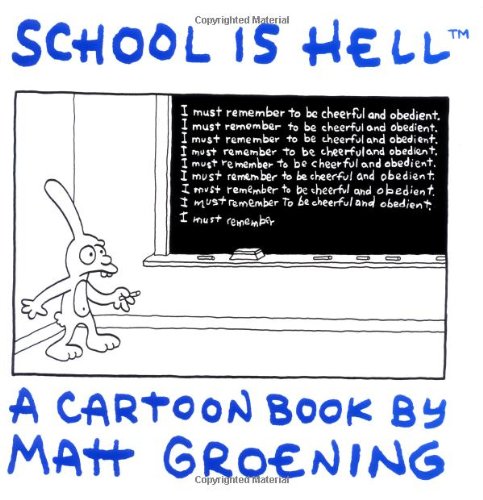 Copyrighted Material
SCHOOL IS HELL™
I must remember to be cheerful and obedient.
I must remember to be cheerful and obedient.
I must remember to be cheerful and obedient.
I must remember to be cheerful and obedient.
I must remember to be cheerful and obedient.
I must remember to be cheerful and obedient.
I must remember to be cheerful and obedient.
I must remember To be cheerful and obedient.
I must remember
A CARTOON BOOK BY
MATT GROENING
Copyrighted Material